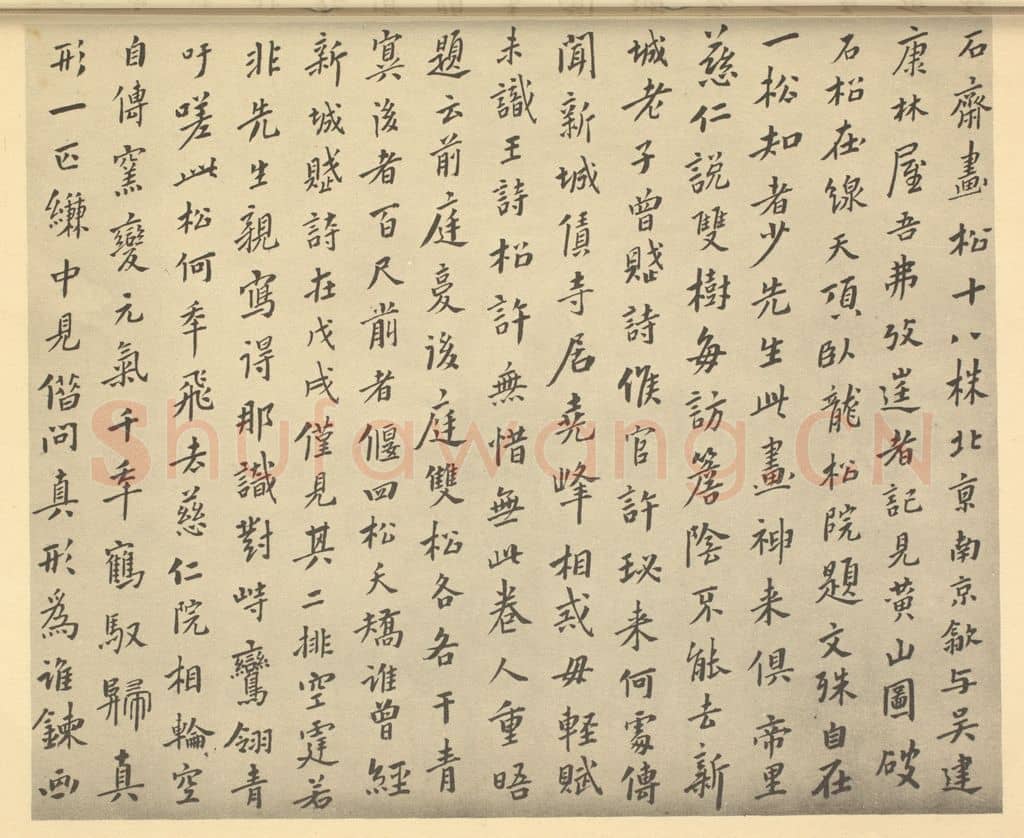 石齋畫松十八株北京南京歙与吴建
康林屋吾弗攷崖者記見黃山圖破
石松在線天頂臥龍松院題文殊自在
一松知者少先生此畫神来俱帝里
慈仁說雙樹每訪簷陰不能去新
城老子曾賦詩倐官許玅来何處傳
聞新城僨寺居堯峰相惑毋輕賦
未識王詩松許無惜無此卷人重晤
題云前庭憂後庭雙松各各干青
冥後者百尺前者偃四松夭矯誰曾經
新城賦詩在戊戌僅見其二排空霆若
非先生親寫得那識對峙鸞翎青
吁嗟此松何年飛去慈仁院相輪空
自傳窯變元氣千年鶴馭歸真
形一匹練中見偕問真形為誰鍊画
Shufawang.CN